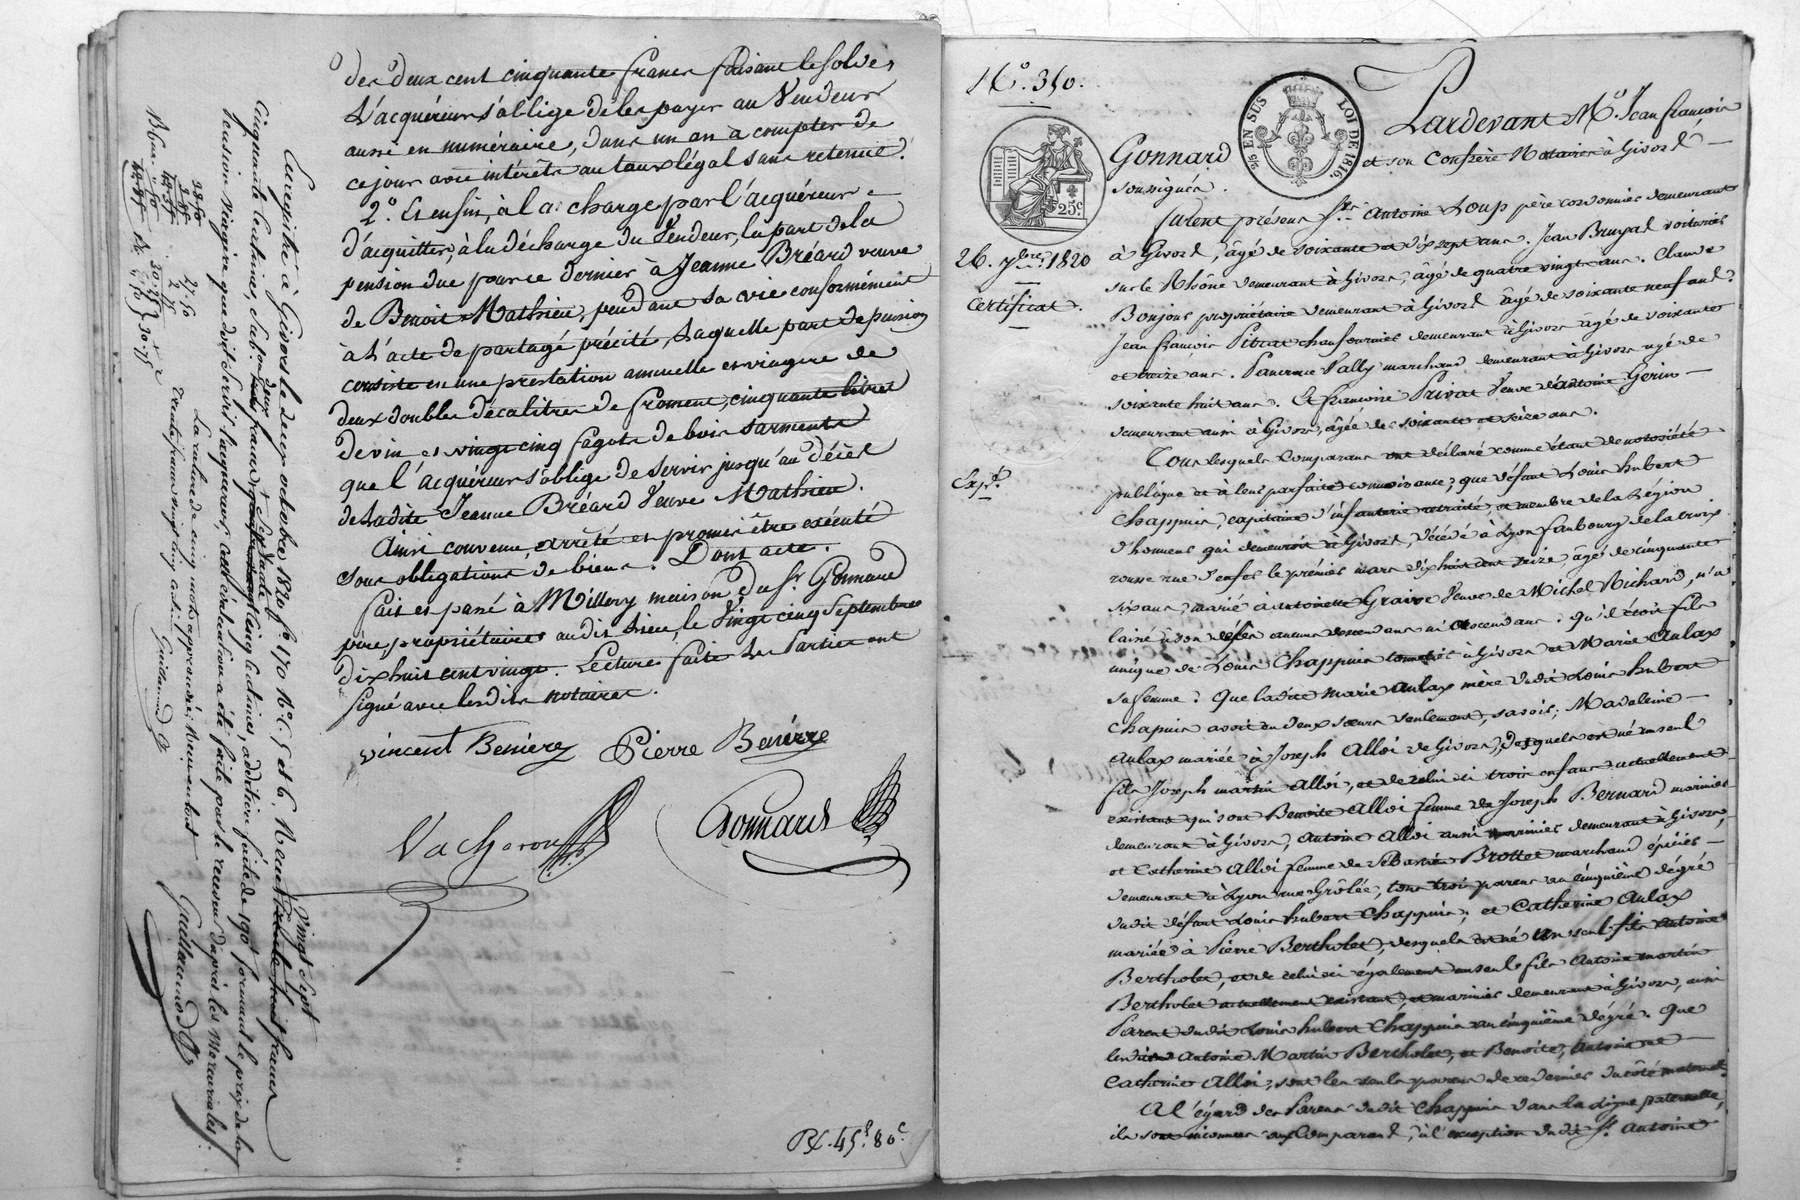 des deux cent cinquante francs faisant le solde,
L'acquéreur s'oblige de les payer au Vendeur
aussi en numéraire, dans un an à compter de
ce jour avec intérêts au taux légal sans retenue.
2.° Et enfin, à la charge par l'acquéreur
d'acquitter, à la décharge du Vendeur, la part de la
pension due par ce dernier à Jeanne Bréard veuve
de Benoit Mathieu, pendant sa vie conformément
à l'acte de partage précité, laquelle part de pension
consiste en une prestation annuelle et viagère de
deux doubles décalitres de froment, cinquante litres
de vin et vingt cinq fagots de bois sarments
que l'acquéreur s'oblige de servir jusqu'au décès
de ladite Jeanne Bréard Veuve Mathieu.
Ainsi convenu, arrêté et promis être exécuté
sous obligations de biens. Dont acte.
fait et passé à Millery maison du Sr. Gonnard
père, propriétaire audit lieu, le Vingt cinq Septembre
dix huit cent vingt. Lecture faite les Parties ont
signé avec lesdits notaires.
Vincent Benière Pierre Benière
Vacheron Gonnard
R/. 45f. 80c.
Enregistré à Givors le deux octobre 1820 f° 170 R° C. 5 et 6. Reçu Vingt sept francs
cinquante centimes, Sub.on deux francs Septante cinq centimes, addition faite de 190f formant le prix de la
pension viagère que doit servir l'acquéreur, cette évaluation a été faite par le receveur d'après les Mercuriales.
Guillermond
Guillermond
N.° 350.
Pardevant M.e Jean françois
Gonnard et son Confrère Notaires à Givors
soussignés.
25 EN SUS LOI DE 1816.
25c
26. 7bre. 1820
Certificat.
Exp.é
furent présens Srs. Antoine Loup père cordonnier demeurant
à Givors, âgé de soixante et dix sept ans. Jean Bruyal voiturier
sur le Rhône demeurant à Givors, âgé de quatre vingts ans. Claude
Bonjour propriétaire demeurant à Givors âgé de soixante neuf ans.
Jean françois Pitrat chaufournier demeurant à Givors âgé de soixante
et treize ans. Pancrace Vally marchand demeurant à Givors agé de
soixante huit ans. Et françoise Privat Veuve d'antoine Gerin
demeurant aussi à Givors, âgée de soixante et seize ans.
Tous lesquels Comparans ont déclaré comme étant de notoriété
publique et à leur parfaite connoissance, que défunt Louis hubert
Chappuis, capitaine d'infanterie retraité, et membre de la Légion
d'honneur qui demeuroit à Givors, décédé à Lyon faubourg de la croix
rousse rue d'enfer le premier mars dix huit cent treize, âgé de cinquante
six ans, marié à antoinette Graive Veuve de Michel Richard, n'a
laissé à son décès aucuns descendans ni ascendans. Qu'il étoit fils
unique de Louis Chappuis à Givors et Marie Aulax
sa femme. Que ladite marie aulax mère dudit Louis hubert
Chapuis avoit eu deux sœurs seulement, savoir, Madeleine
aulax mariée à Joseph Alloi de Givors, desquels est né un seul
fils Joseph martin Alloi, et de celui ci trois enfans actuellement
existans qui sont Benoite Alloi femme de Joseph Bernard marinier
demeurant à Givors, Antoine Alloi aussi marinier demeurant à Givors,
et Catherine Alloi femme de Sébastien Brottet marchand épicier
demeurant à Lyon rue Grôlée, tous trois parens au cinquième degré
dudit défunt Louis hubert Chappuis, et Catherine Aulax
mariée à Pierre Bertholet, desquels est né un seul fils Antoine
Bertholet, et de celui ci également un seul fils Antoine martin
Bertholet actuellement existant, et marinier demeurant à Givors, aussi
Parent dudit Louis hubert Chappuis au cinquième dégré. Que
lesdits Antoine Martin Bertholet, et Benoite, Antoine et
Catherine Alloi, sont les seuls parens de ce dernier du côté maternel.
A l'égard des Parens dudit Chappuis dans la ligne paternelle,
ils sont inconnus aux Comparans, à l'exception dudit Sr. Antoine